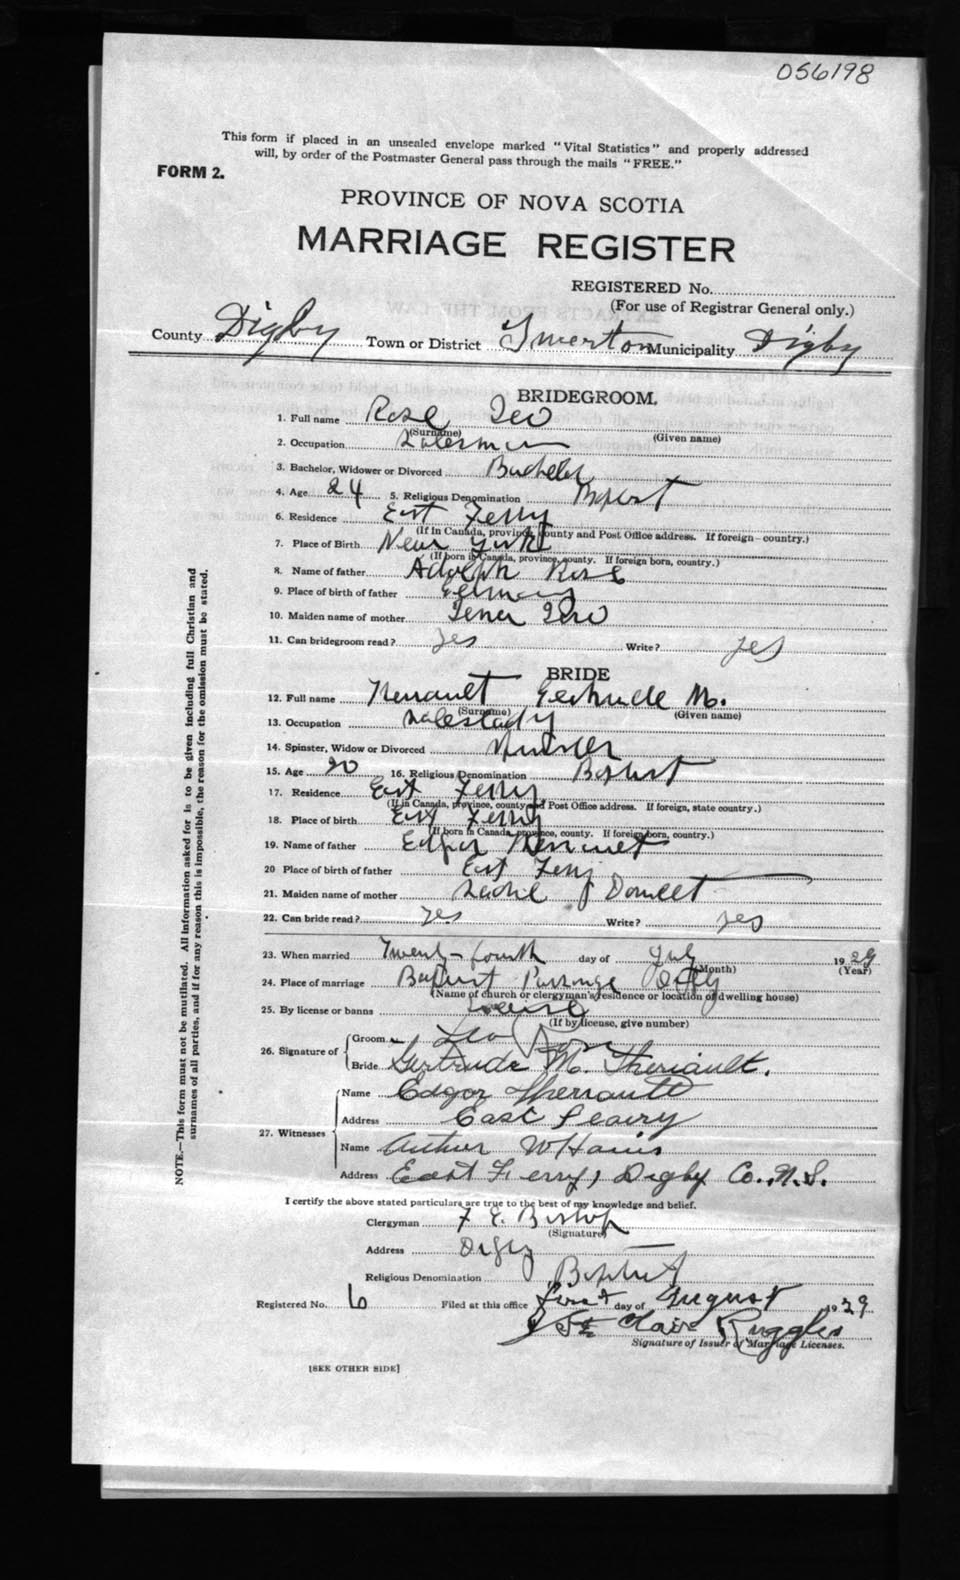 056198
This form if placed in an unsealed envelope marked "Vital Statistics" and properly addressed
will, by order of the Postmaster General pass through the mails "FREE."
FORM 2.
PROVINCE OF NOVA SCOTIA
MARRIAGE REGISTER
REGISTERED No.
(For use of Registrar General only.)
County Digby Town or District Municipality Digby
BRIDEGROOM.
1. Full name Rose Leo
(Surname) (Given name)
2. Occupation Salesman
3. Bachelor, Widower or Divorced Bachelor
4. Age 24 5. Religious Denomination Baptist
6. Residence East Ferry
(If in Canada, province, county and Post Office address. If foreign-country.)
7. Place of Birth New York
(If born in Canada, province, county. If foreign born, country.)
8. Name of father Adolph Rose
9. Place of birth of father Germany
10. Maiden name of mother
11. Can bridegroom read? yes Write? yes
BRIDE
12. Full name Therriault Gertrude M.
(Surname) (Given name)
13. Occupation Saleslady
14. Spinster, Widow or Divorced Spinster
15. Age 20 16. Religious Denomination Baptist
17. Residence East Ferry
(If in Canada, province, county and Post Office address. If foreign, state country.)
18. Place of birth East Ferry
(If born in Canada, province, county. If foreign born, country.)
19. Name of father Edgar
20 Place of birth of father East Ferry
21. Maiden name of mother
22. Can bride read? yes Write? yes
23. When married Twenty-fourth day of July 1929
(Month) (Year)
24. Place of marriage Baptist Parsonage Digby
(Name of church or clergyman's residence or location of dwelling house)
25. By license or banns License
(If by license, give number)
26. Signature of
Groom Leo Rose
Bride Gertrude M. Theriault.
27. Witnesses
Name Edgar
Address East
Name Arthur W
Address East Ferry, Digby Co., N.S.
I certify the above stated particulars are true to the best of my knowledge and belief.
Clergyman F. E. Bishop
(Signature)
Address Digby
Religious Denomination Baptist
Registered No. 6 Filed at this office first day of August 1929
St Clair Ruggles
Signature of Issuer of Marriage Licenses.
[SEE OTHER SIDE]
NOTE.—This form must not be mutilated. All information asked for is to be given including full Christian and
surnames of all parties, and if for any reason this is impossible, the reason for the omission must be stated.